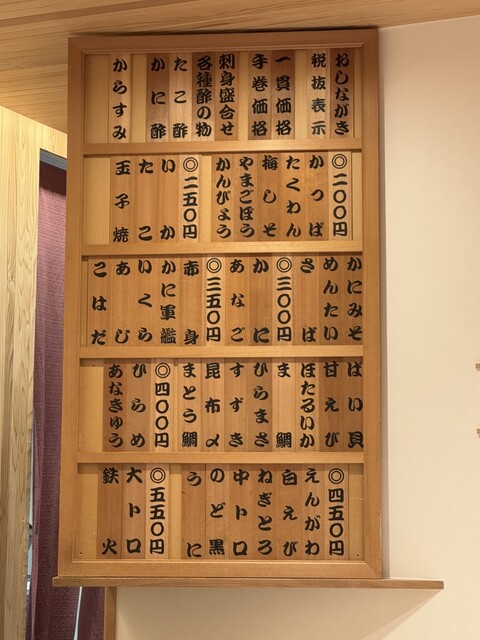 おしながき
税抜表示
一貫価格
手巻価格
刺身盛合せ
各種酢の物
たこ酢
かに酢
からすみ
◎二〇〇円
かっぱ
たくわん
梅しそ
やまごぼう
かんぴょう
◎二五〇円
いか
たこ
玉子焼
かにみそ
めんたい
さば
◎三〇〇円
かに
あなご
◎三五〇円
赤身
かに軍艦
いくら
あじ
こはだ
ばい貝
甘えび
ほたるいか
ま鯛
ひらまさ
すずき
昆布〆
まとう鯛
◎四〇〇円
ひらめ
あなきゅう
◎四五〇円
えんがわ
白えび
ねぎとろ
中トロ
のど黒
うに
◎五五〇円
大トロ
鉄火